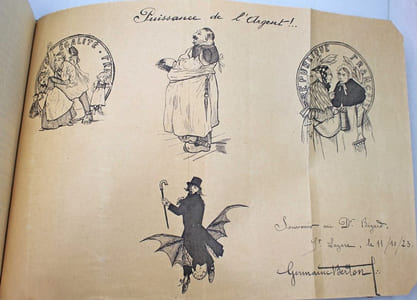 Puissance de l'Argent!..
ÉGALITÉ
Souvenir au Dr. Bizard.
St Lazare, le 11/10/23.
Germaine Berton